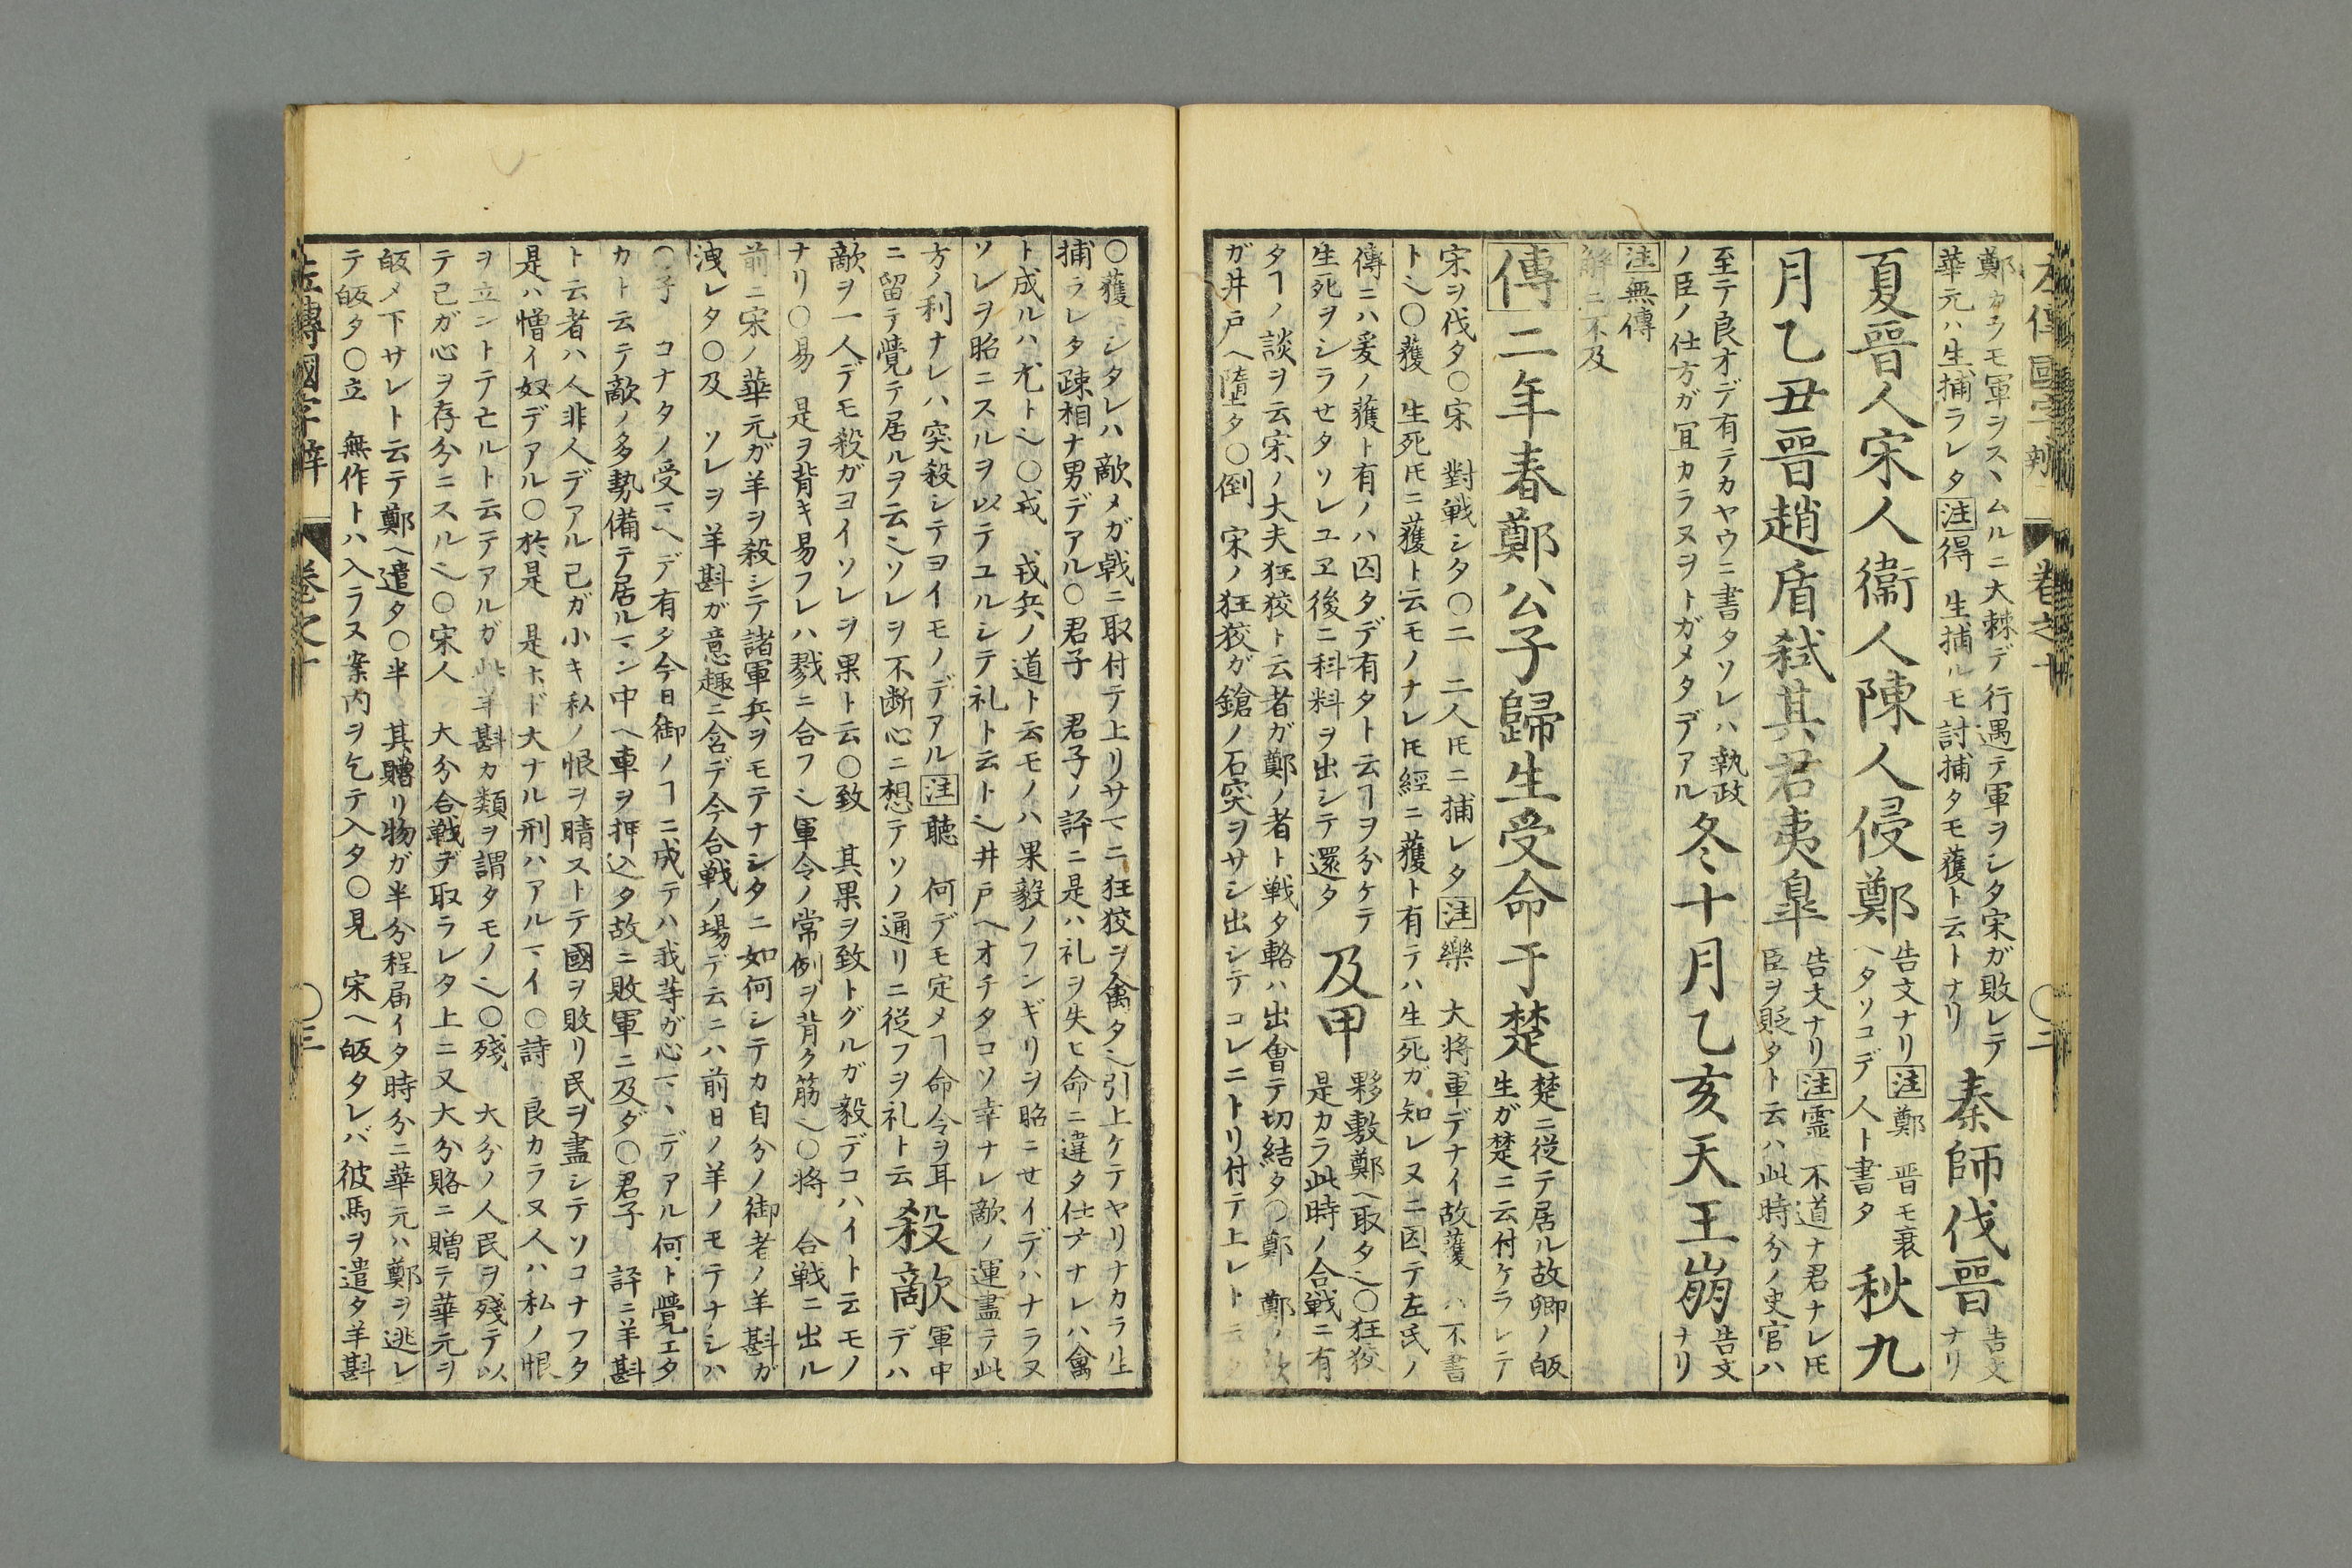 左傳國字辨 卷之十 ○二
鄭カラモ軍ヲスヽムルニ大棘デ行遇テ軍ヲシタ宋ガ敗レテ
華元ハ生捕ラレタ 注 得 生捕ルモ討捕タモ獲ト云トナリ
秦師伐晉
告文
ナリ
夏晉人宋人衞人陳人侵鄭
告文ナリ 注 鄭 晋モ衰
ヘタソコデ人ト書タ
秋九
月乙丑晉趙盾弑其君夷皐
告文ナリ 注 霊 不道ナ君ナレ𪜈
臣ヲ貶タト云ハ此時分ノ史官ハ
至テ良オデ有テカヤウニ書タソレハ執政
ノ臣ノ仕方ガ冝カラヌヲトガメタデアル
冬十月乙亥天王崩
告文
ナリ
注 無傳
解ニ不及
傳 二年春鄭公子歸生受命于楚
楚ニ従テ居ル故卿ノ皈
生ガ楚ニ云付ケラレテ
宋ヲ伐タ○宋 對戦シタ○二 二人𪜈ニ捕レタ 注 樂 大将軍デナイ故獲 ハ不書
ト〆○獲 生死𪜈ニ獲ト云モノナレ𪜈經ニ獲ト有テハ生死ガ知レヌニ因テ左氏ノ
傳ニハ爰ノ獲ト有ノハ囚タデ有タト云ヿヲ分ケテ
生死ヲシラせタソレユヱ後ニ科料ヲ出シテ還タ
及甲
夥敷鄭ヘ取タ〆○狂狡
是カラ此時ノ合戦ニ有
タヿノ談ヲ云宋ノ大夫狂狡ト云者ガ鄭ノ者ト戦タ輅ハ出會テ切結タ○鄭 鄭ノ
ガ井戸ヘ墮タ○倒 宋ノ狂狡ガ鎗ノ石突ヲサシ出シテコレニトリ付テ上レト
○獲 シタレハ敵メガ戟ニ取付テ上リサマニ狂狡ヲ禽タ〆引上ケテヤリナカラ生
捕ラレタ疎相ナ男デアル○君子 君子ノ評ニ是ハ礼ヲ失ヒ命ニ違タ仕方ナレハ禽
ト成ルハ尤ト〆○戎 戎兵ノ道ト云モノハ果毅ノフンギリヲ昭ニせイデハナラヌ
ソレヲ昭ニスルヲ以テユルシテ礼ト云ト〆井戸ヘオチタコソ幸ナレ敵ノ運盡ラ此
方ノ利ナレハ突殺シテヨイモノデアル 注 聴 何デモ定メヿ命令ヲ耳
ニ留テ覺テ居ルヲ云〆ソレヲ不断心ニ想テソノ通リニ従フヲ礼ト云
殺敵
軍中
デハ
敵ヲ一人デモ殺ガヨイソレヲ果ト云○致 其果ヲ致トグルガ毅デコハイト云モノ
ナリ○易 是ヲ背キ易フレハ戮ニ合フ〆軍令ノ常例ヲ背ク筋〆○将 合戦ニ出ル
前ニ宋ノ華元ガ羊ヲ殺シテ諸軍兵ヲモテナシタニ如何シテカ自分ノ御者ノ羊斟ガ
洩レタ○及 ソレヲ羊斟ガ意趣ニ含デ今合戦ノ場デ云ニハ前日ノ羊ノモテナシハ
○子 コナタノ受マヘデ有タ今日御ノヿニ成テハ我等ガ心マヽデアル何ト覺エタ
カト云テ敵ノ多勢備テ居ルマン中ヘ車ヲ押込タ故ニ敗軍ニ及ダ○君子 評ニ羊斟
ト云者ハ人非人デアル己ガ小キ私ノ恨ヲ晴ストテ國ヲ敗リ民ヲ盡シテソコナフタ
是ハ憎イ奴デアル○於是 是ホド大ナル刑ハアルマイ○詩 良カラヌ人ハ私ノ恨
ヲ立ントテ亡ルト云テアルガ此羊斟カ類ヲ謂タモノ〆○殘 大分ノ人民ヲ殘テ以
テ己ガ心ヲ存分ニスル〆○宋人 大分合戦デ取ラレタ上ニ又大分賂ニ贈テ華元ヲ
皈メ下サレト云テ鄭ヘ遣タ○半 其贈リ物ガ半分程届イタ時分ニ華元ハ鄭ヲ逃レ
テ皈タ○立 無作トハ入ラス案内ヲ乞テ入タ○見 宋ヘ皈タレバ彼馬ヲ遣タ羊斟
左傳國字辨 卷之十 ○三